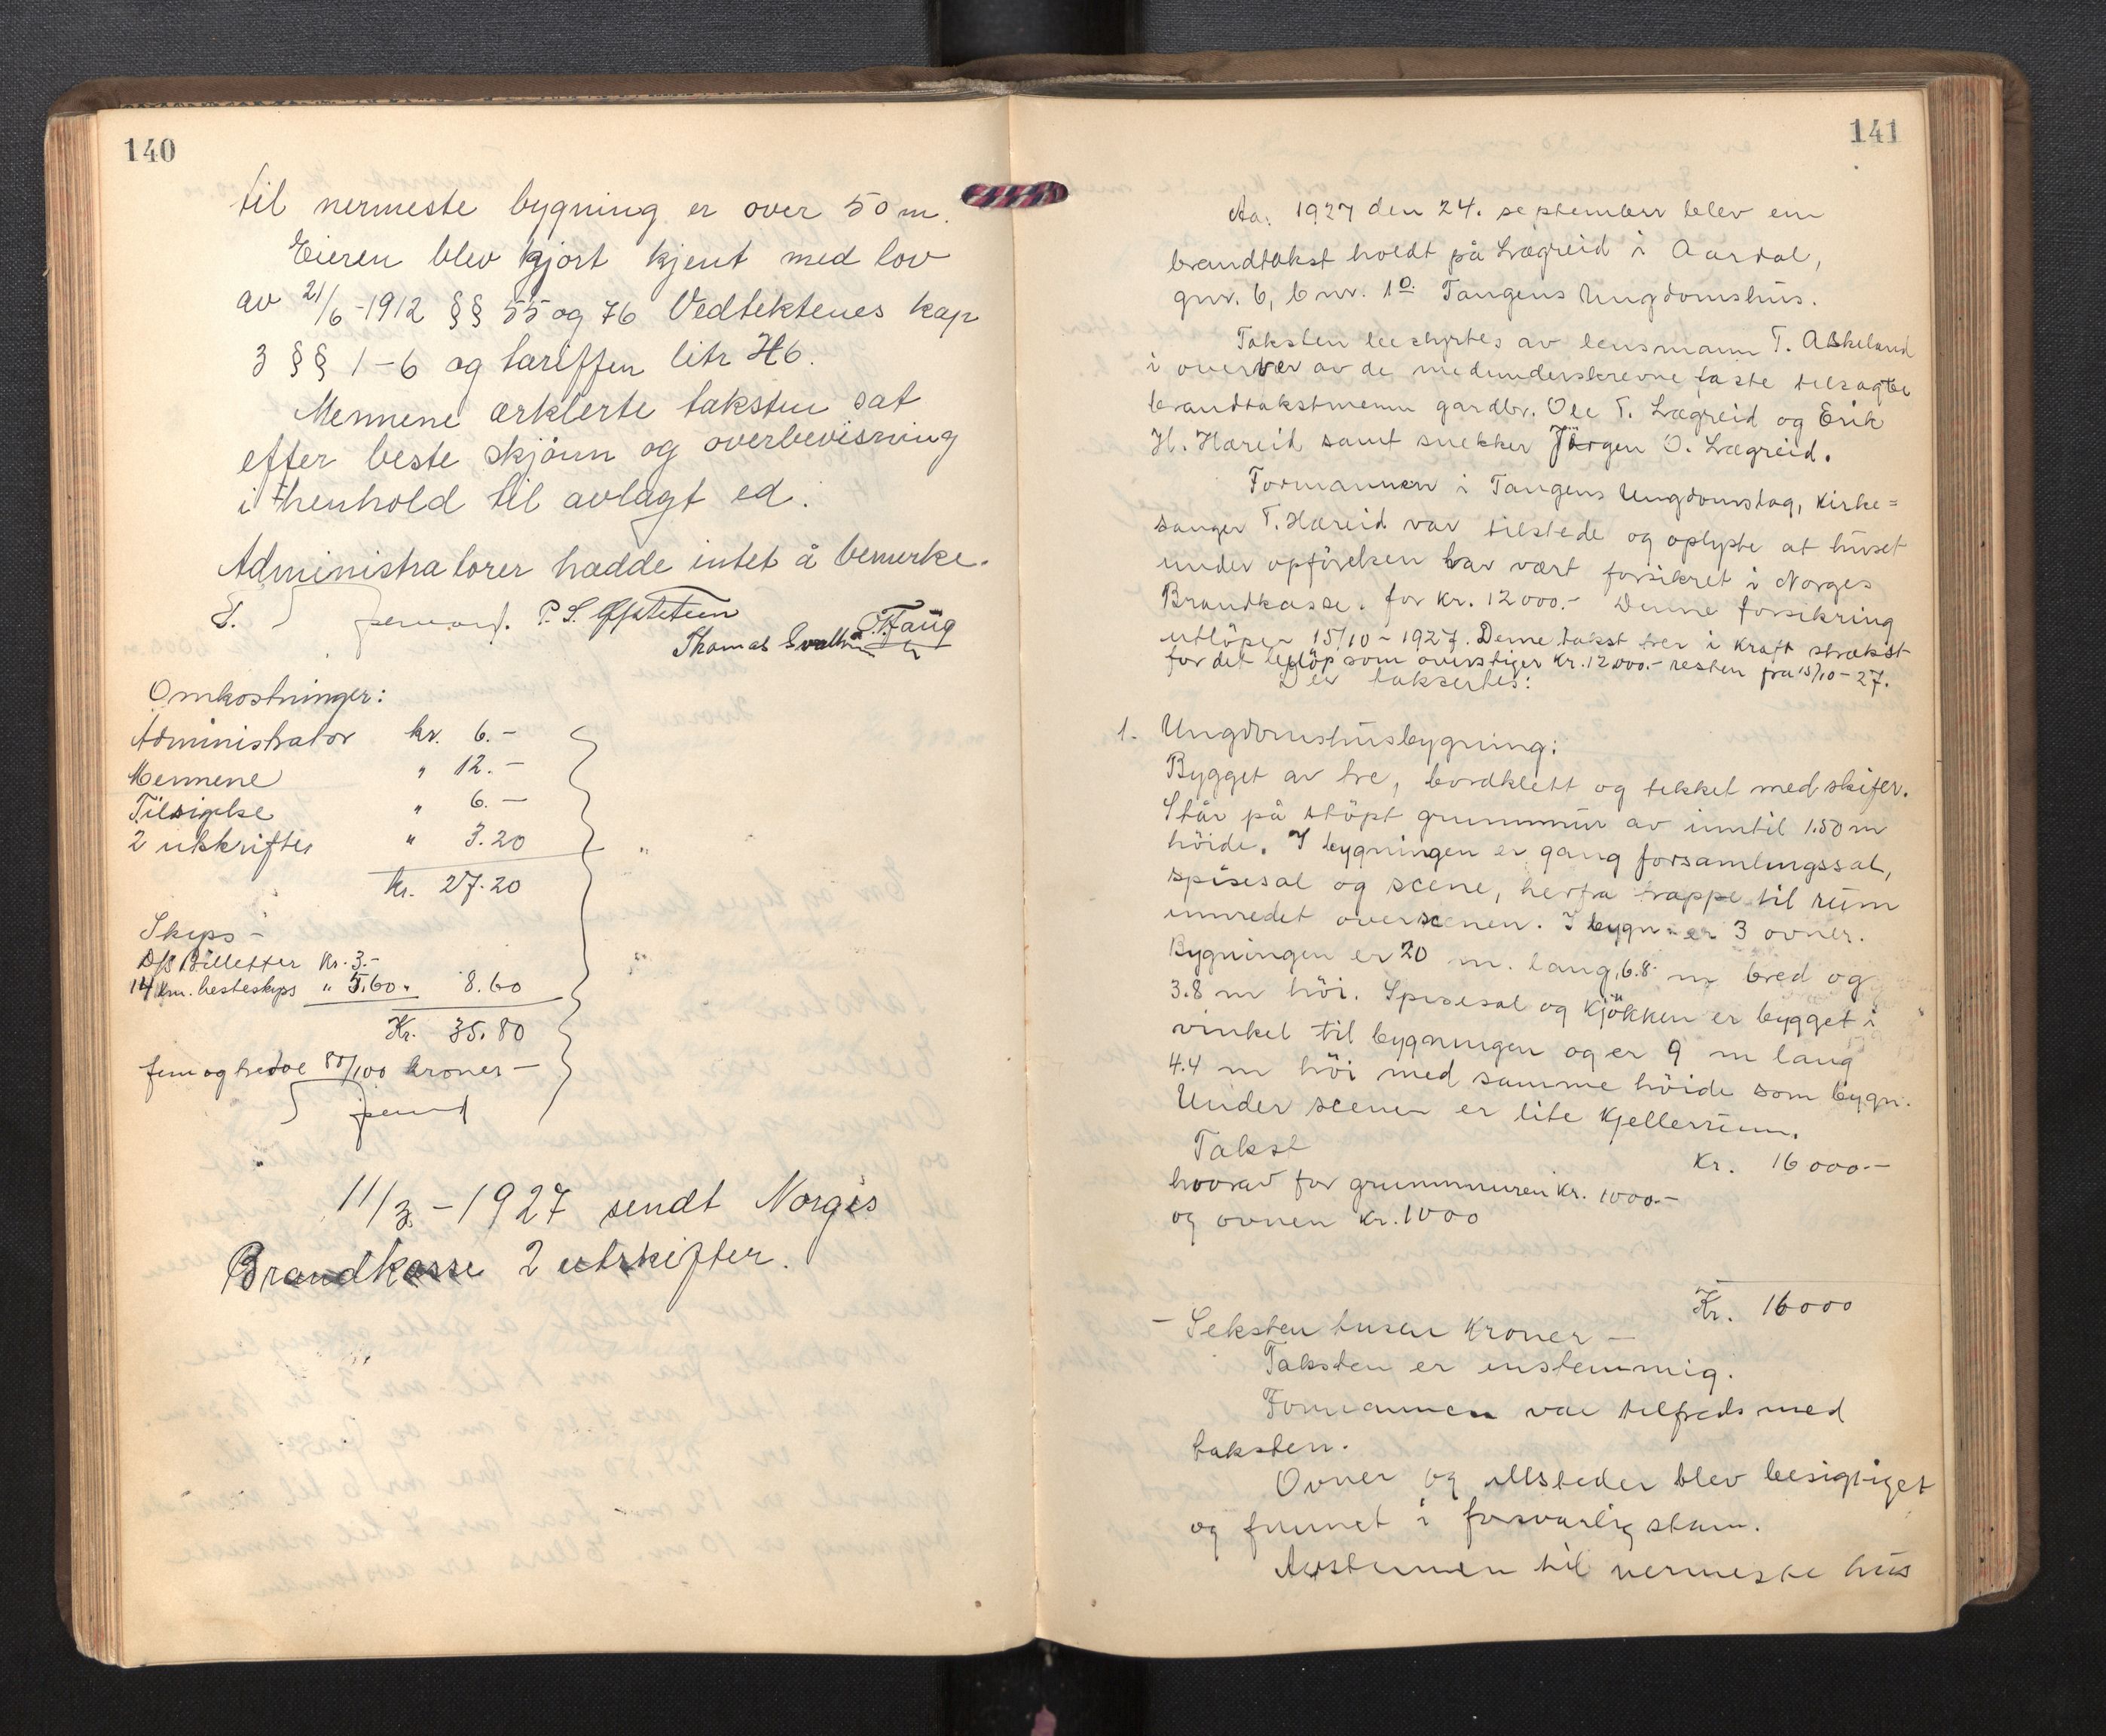 140
til nermeste bygning er over 50 m.
Eieren blev gjort kjent med lov
av 21/6-1912 §§ 55 og 76 Vedtektenes kap
3 §§ 1-6 og tariffen litr H6.
Mennene ærklerte taksten sat
efter beste skjönn og overbevisning
i henhold til avlagt ed.
Administratorer hadde intet å bemerke.
P. S. Ofstetun
Thomas
Omkostninger:
Administrator kr. 6.-
Mennene " 12.-
Tilsigelse " 6.-
2 utskrifter " 3.20
kr. 27.20
Skyss -
D/S Billetter Kr. 3.-
14 km. hesteskyss " 5.60. 8.60
Kr. 35.80
fem og tredve 80/100 kroner -
11/3-1927 sendt Norges
Brandkasse 2 utskrifter.
141
Aa. 1927 den 24. september blev en
brandtakst holdt på Lægreid i Aardal,
gnr. 6, bnr. 10 Tangens Ungdomshus.
Taksten bestyrtes av lensmann T. Askeland
i overver av de medunderskrevne faste tilsagte
brandtakstmenn gardbr. Ole T. Lægreid og Erik
H. Hæreid samt snekker Jörgen O. Lægreid.
Formannen i Tangens Ungdomslag, Kirke=
sanger T. Hæreid var tilstede og oplyste at huset
under opförelsen har vært forsikret i Norges
Brandkasse. for Kr. 12000.- Denne forsikring
utlöper 15/10-1927. Denne takst trer i kraft strakst
for det belöp som overstiger Kr. 12000.- resten fra 15/10-27.
Der taksertes:
1. Ungdomshusbygning:
Bygget av tre, bordklett og tekket med skifer.
Står på stöpt grunnmur av inntil 1.50 m
höide. I bygningen er gang forsamlingssal,
spisesal og scene, herfra trappe til rum
innredet over scenen. I bygn. er 3 ovner.
Bygningen er 20 m. lang, 6.8 m bred og
3.8 m höi. Spisesal og Kjökken er bygget i
vinkel til bygningen og er 9 m lang
4.4 m höi med samme höide som bygn.
Under scenen er lite Kjellerrum.
Takst Kr. 16000.-
hvorav for grunnmuren Kr. 1000.-
og ovnen Kr. 1000
Kr. 16000
- Seksten tusen Kroner -
Taksten er enstemmig.
Formannen var tilfreds med
taksten.
Ovner og ildsteder blev besigtiget
og funnet i forsvarlig stann.
Avstannen til nermeste hus